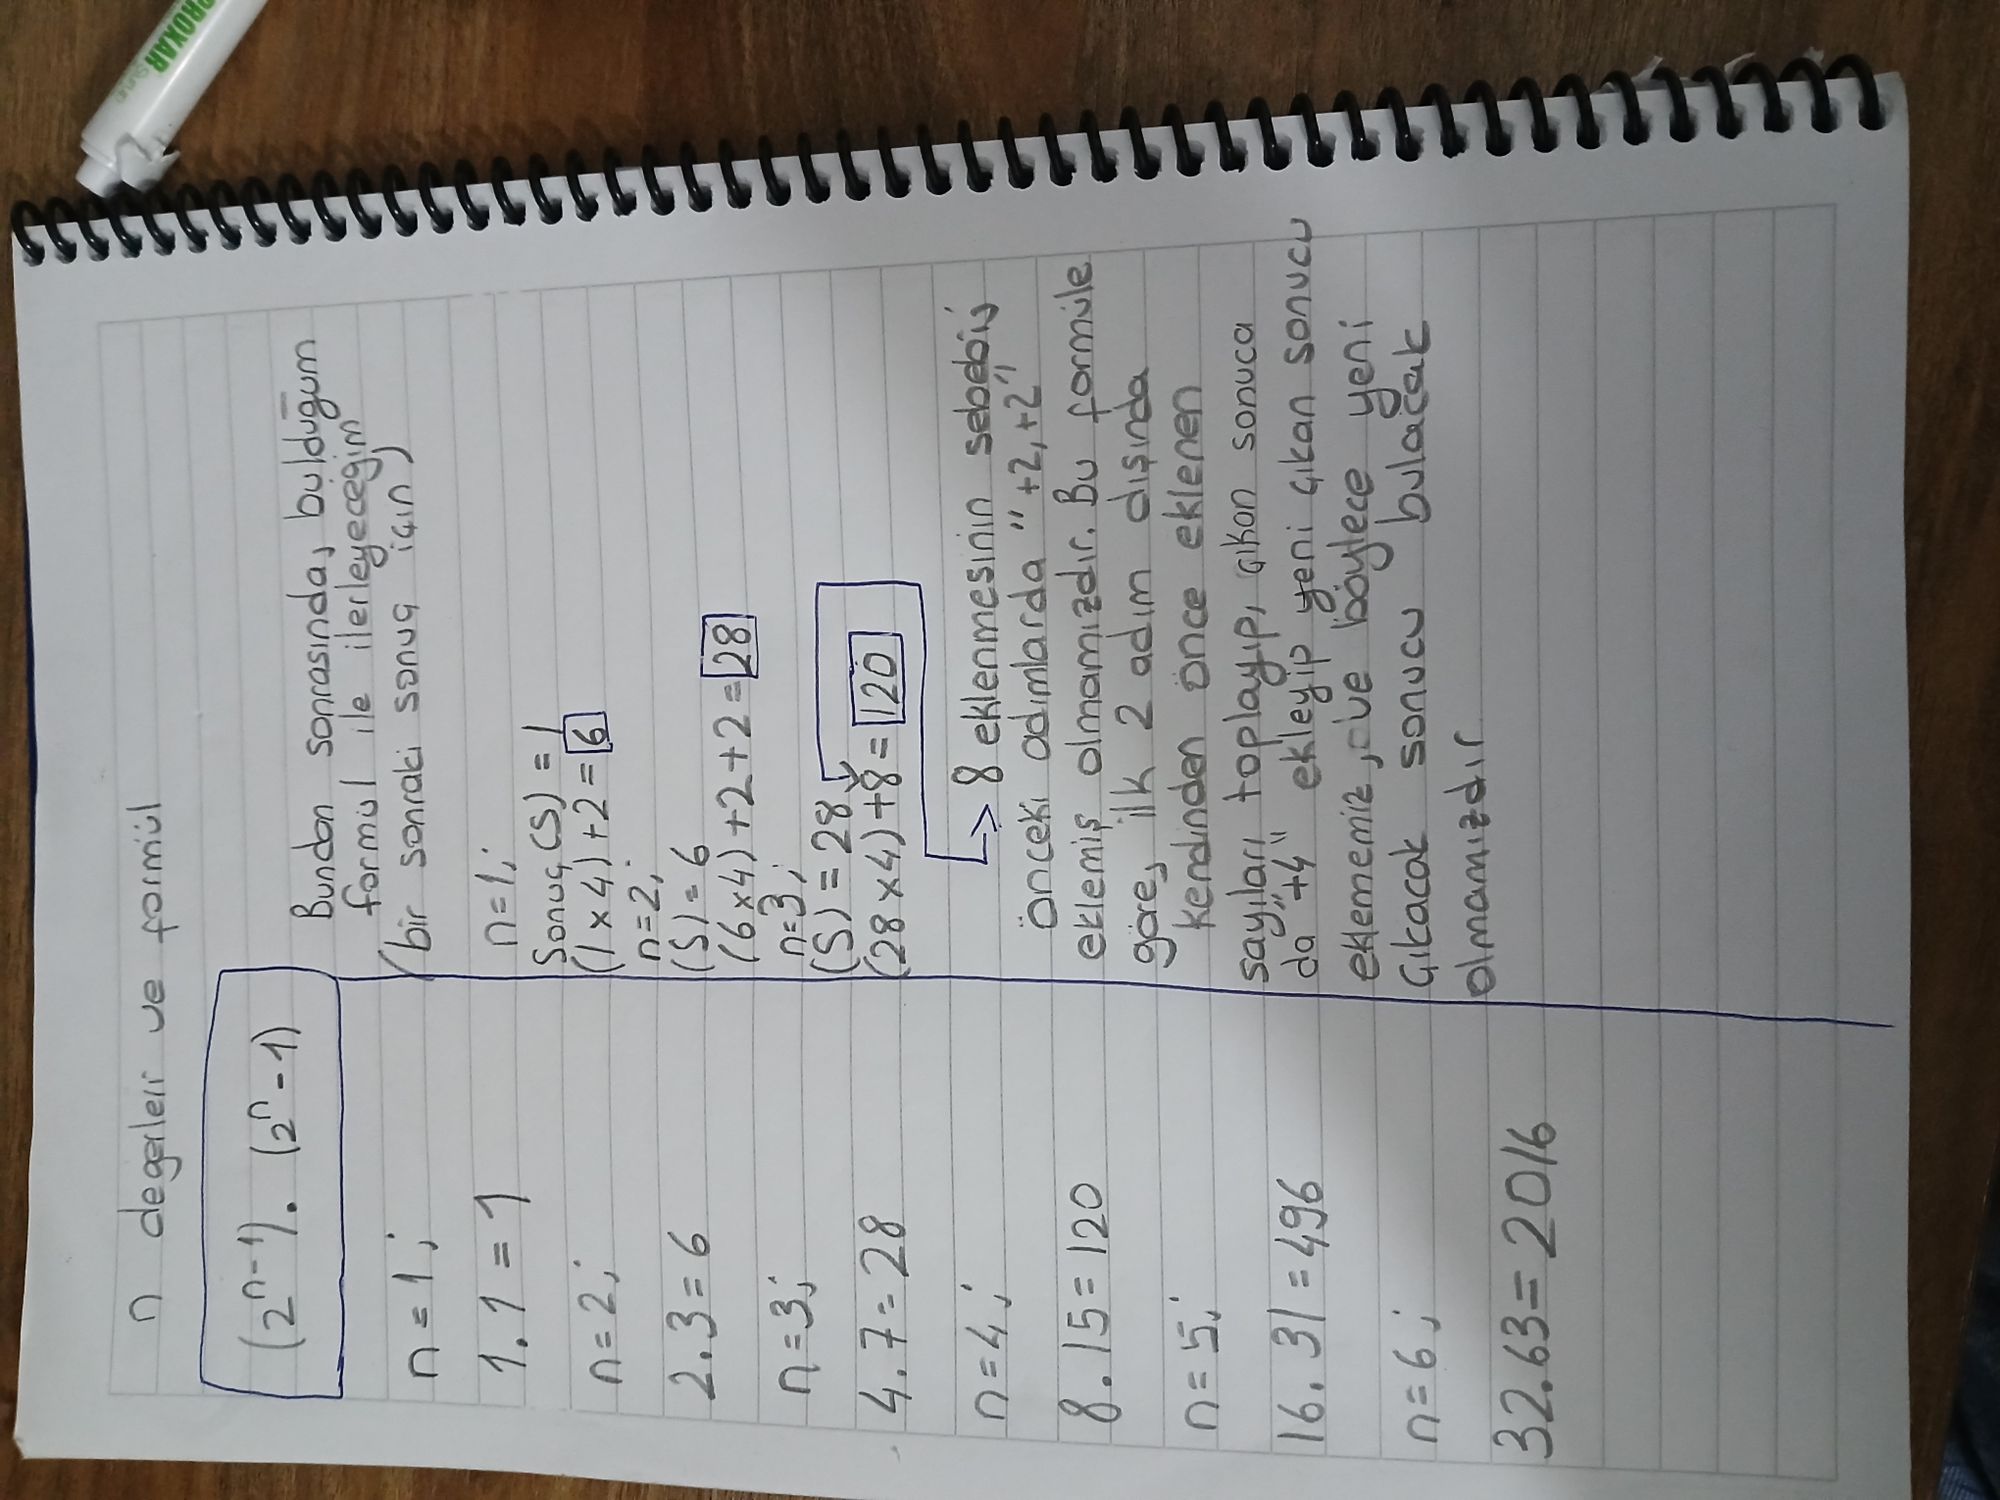 PROXAR
n değerleri ve formül
(2ⁿ⁻¹). (2ⁿ-1)
n=1;
1.1=1
n=2;
2.3=6
n=3;
4.7=28
n=4;
8.15=120
n=5;
16.31=496
n=6;
32.63=2016
Bundan sonrasında, bulduğum
formül ile ilerleyeceğim
(bir sonraki sonuç için)
n=1;
Sonuç(S)=1
(1x4)+2=6
n=2;
(S)=6
(6x4)+2+2=28
n=3;
(S)=28
(28x4)+8=120
→ 8 eklenmesinin sebebi;
önceki adımlarda "+2,+2"
eklemiş olmamızdır. Bu formüle
göre, ilk 2 adım dışında
kendinden önce eklenen
sayıları toplayıp, çıkan sonuca
da "+4" ekleyip yeni çıkan sonucu
eklememiz, ve böylece yeni
çıkacak sonucu bulacak
olmamızdır